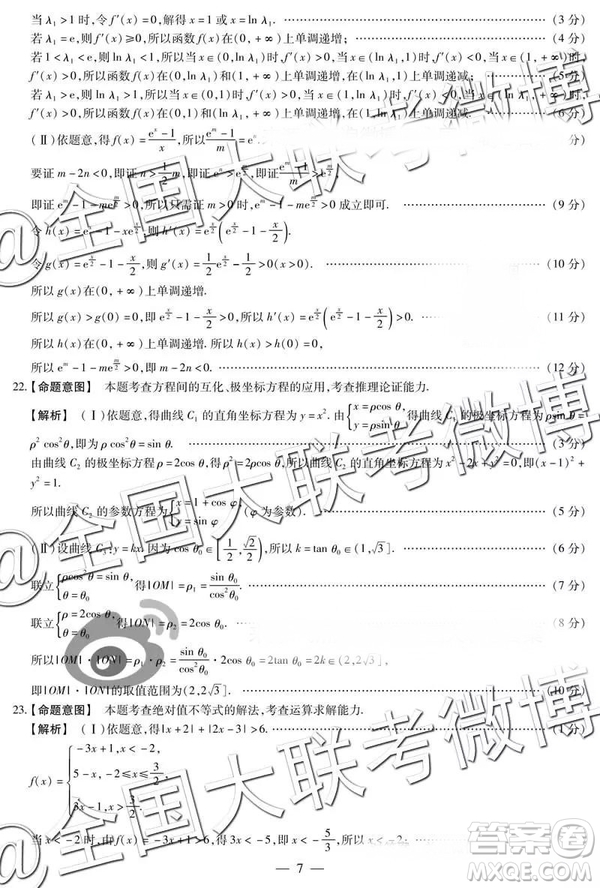 当 λ₁ > 1 时,令 f′(x) = 0,解得 x = 1 或 x = ln λ₁. (3 分)
若 λ₁ = e,则 f′(x) ≥ 0,所以函数 f(x) 在 (0, +∞) 上单调递增; (4 分)
若 1 < λ₁ < e,则 0 < ln λ₁ < 1,所以当 x∈(0, ln λ₁) 时, 当 x∈(ln λ₁, 1) 时, 当 x∈(1, +∞) 时
f′(x) > 0,所以函数 f(x) 在 (0, ln λ₁) 和 (1, +∞) 上单调递增,在 (ln λ₁, 1) 上单调递减; (5 分)
若 λ₁ > e,则 ln λ₁ > 1,所以当 x∈(0, 1) 时, 当 x∈(1, ln λ₁) 时, 当 x∈(ln λ₁, +∞) 时,
f′(x) > 0,所以函数 f(x) 在 (0, 1) 和 (ln λ₁, +∞) 上单调递增,在 (1, ln λ₁) 上单调递减. (6 分)
(Ⅱ) 依题意,得 f(x) = (eˣ − 1)/x,所以 (eᵐ − 1)/m = eⁿ.
要证 m − 2n < 0,即证 n > (1/2)m,即证 eⁿ > e^(m/2),即证 (eᵐ − 1)/m > e^(m/2),
即证 eᵐ − 1 − me^(m/2) > 0,所以只需证 m > 0 时, eᵐ − 1 − me^(m/2) > 0 成立即可. (9 分)
令 h(x) = eˣ − 1 − xe^(x/2),则 h′(x) = e^(x/2)(e^(x/2) − 1 − x/2).
令 g(x) = e^(x/2) − 1 − x/2,则 g′(x) = (1/2)e^(x/2) − 1/2 > 0 (x > 0). (10 分)
所以 g(x) 在 (0, +∞) 上单调递增.
所以 g(x) > g(0) = 0,即 e^(x/2) − 1 − x/2 > 0,所以 h′(x) = e^(x/2)(e^(x/2) − 1 − x/2) > 0. (11 分)
所以 h(x) 在 (0, +∞) 上单调递增. 所以 h(x) > h(0) = 0.
所以 eᵐ − 1 − me^(m/2) > 0,即 m − 2n < 0. (12 分)
22.【命题意图】 本题考查方程间的互化、极坐标方程的应用,考查推理论证能力.
【解析】 (Ⅰ) 依题意,得曲线 C₁ 的直角坐标方程为 y = x². 由 { x = ρcos θ, y = ρsin θ, 得曲线 C₁ 的极坐标方程为 ρsin θ =
ρ²cos²θ,即为 ρcos²θ = sin θ. (3 分)
由曲线 C₂ 的极坐标方程 ρ = 2cos θ,得 ρ² = 2ρcos θ. 所以曲线 C₂ 的直角坐标方程为 x² − 2x + y² = 0,即 (x − 1)² +
y² = 1.
所以曲线 C₂ 的参数方程为 { x = 1 + cos φ, y = sin φ (φ 为参数). (5 分)
(Ⅱ) 设曲线 C₃: y = kx. 因为 cos θ₀ ∈ [1/2, √2/2), 所以 k = tan θ₀ ∈ (1, √3]. (6 分)
联立 { ρcos²θ = sin θ, θ = θ₀, 得 |OM| = ρ₁ = sin θ₀/cos²θ₀. (7 分)
联立 { ρ = 2cos θ, θ = θ₀, 得 |ON| = ρ₂ = 2cos θ₀. (8 分)
所以 |OM| · |ON| = ρ₁ · ρ₂ = (sin θ₀/cos²θ₀) · 2cos θ₀ = 2tan θ₀ = 2k ∈ (2, 2√3].
即 |OM| · |ON| 的取值范围为 (2, 2√3]. (10 分)
23.【命题意图】 本题考查绝对值不等式的解法,考查运算求解能力.
【解析】 (Ⅰ) 依题意,得 |x + 2| + |2x − 3| > 6. (1 分)
f(x) = { −3x + 1, x < −2, 5 − x, −2 ≤ x ≤ 3/2, 3x − 1, x > 3/2.
当 x < −2 时,由 f(x) = −3x + 1 > 6,得 3x < −5,即 x < −5/3,所以 x < −2;
— 7 —
@全国大联考微博
@全国大联考微博
@全国大联考微博
答案圈
MXQE.COM